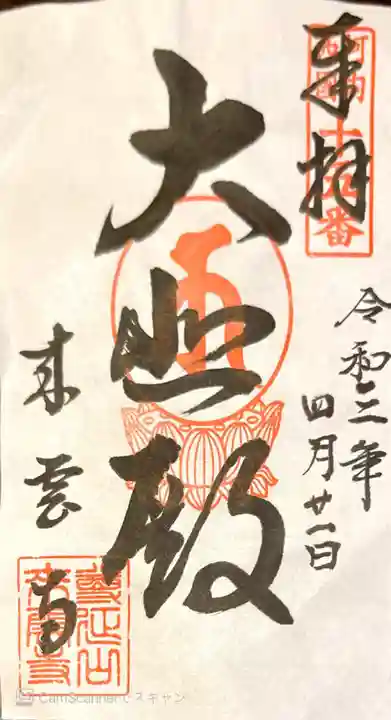 奉拝
令和三年
四月廿一日
大悲殿
来雲寺
CamScannerでスキャン